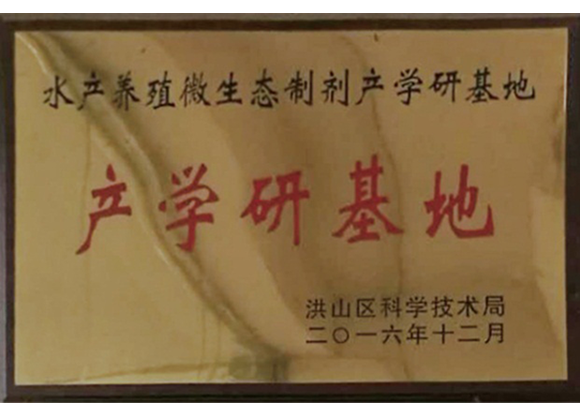 水产养殖微生态制剂产学研基地
产学研基地
洪山区科学技术局
二〇一六年十二月